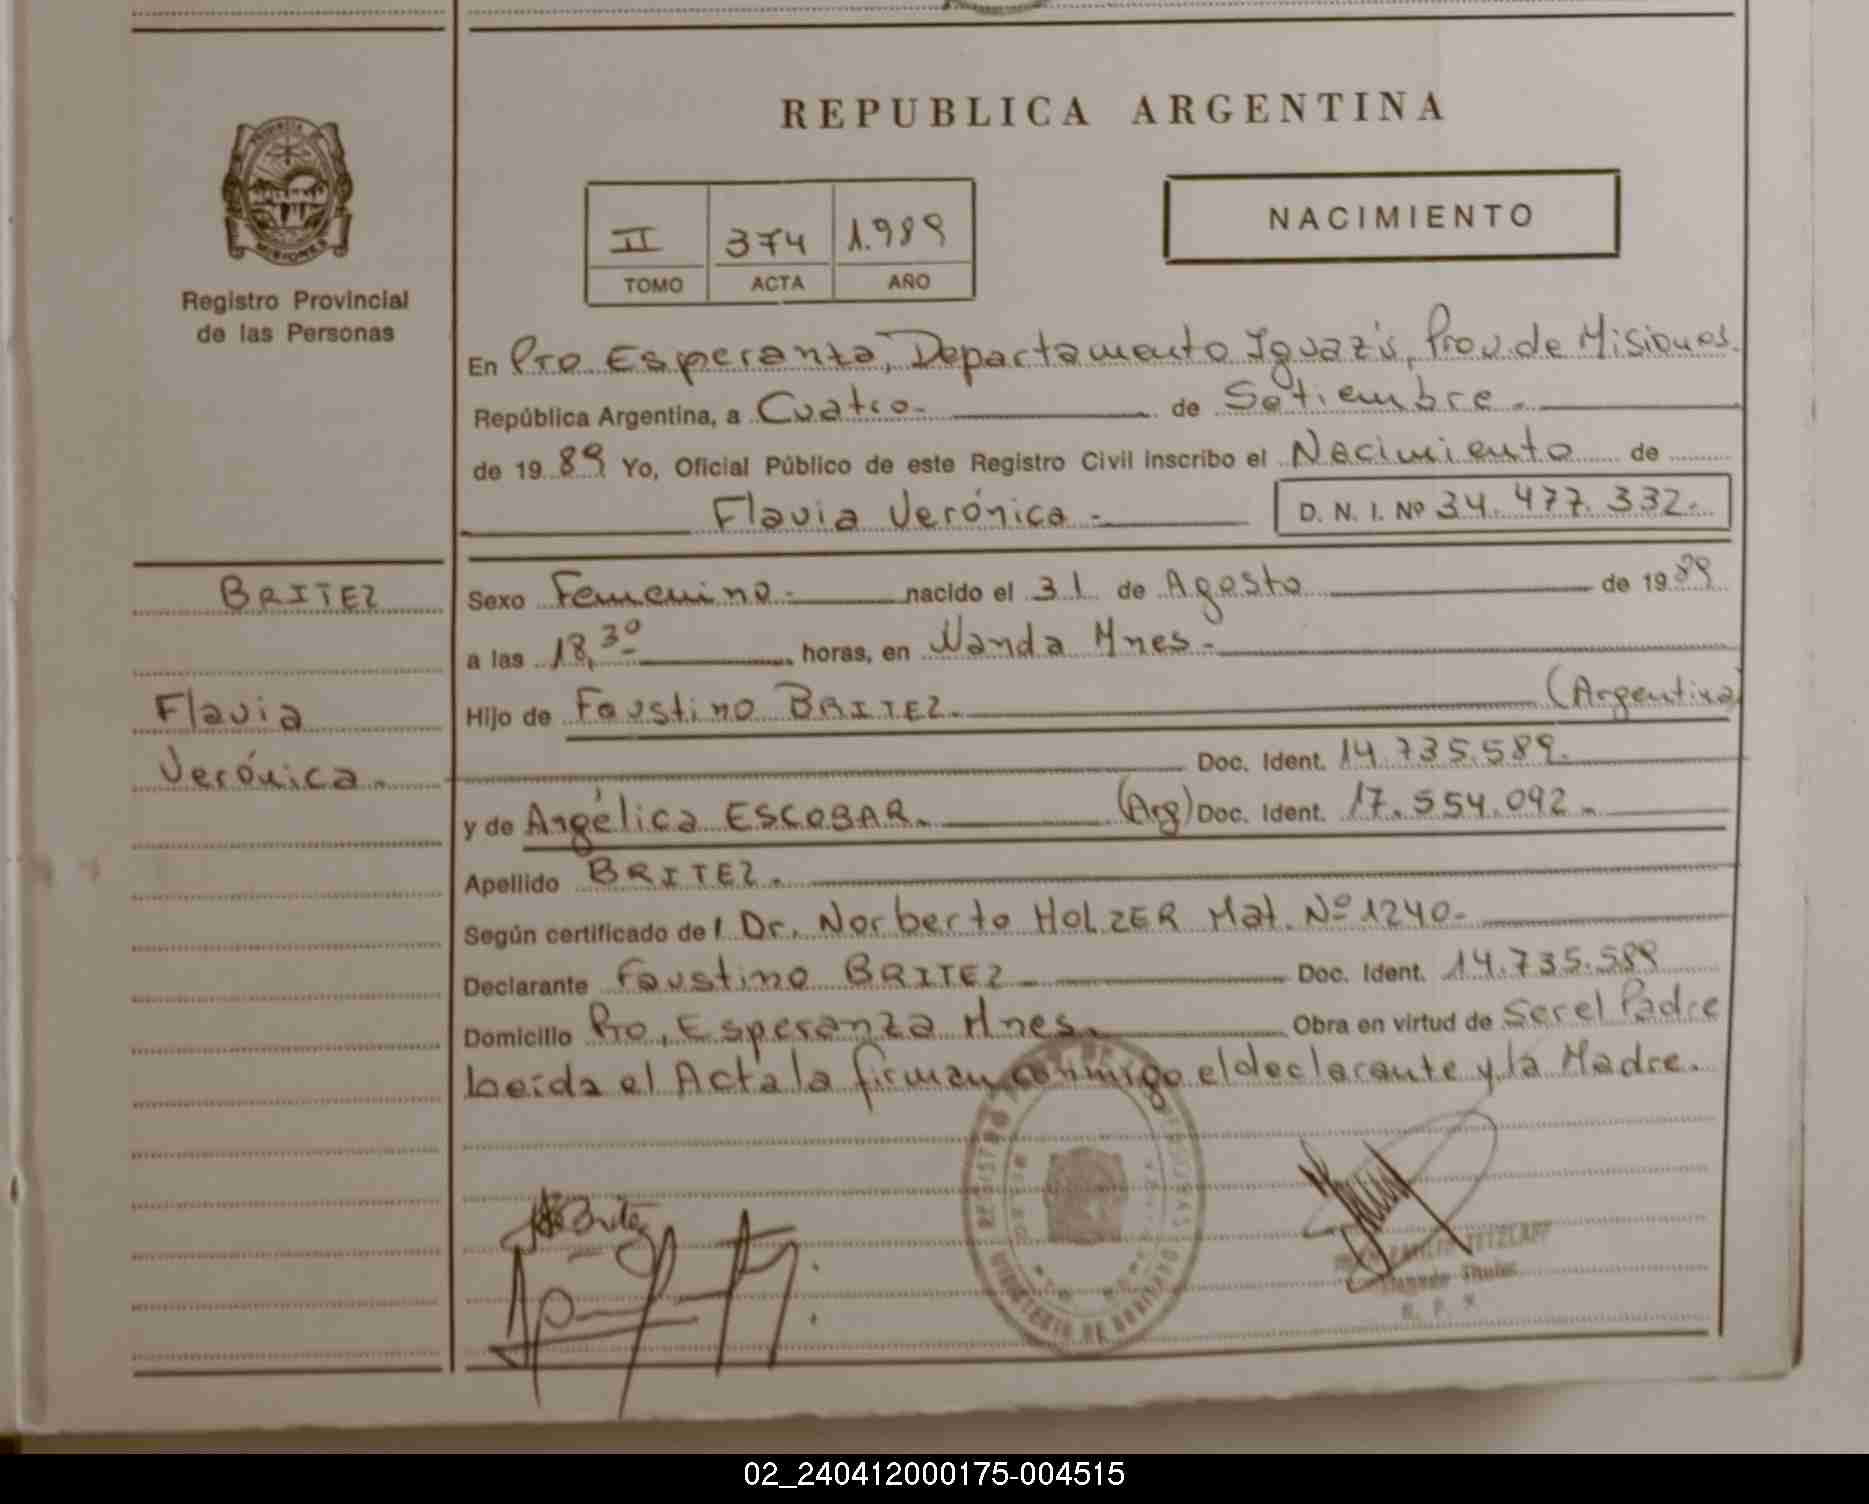 REPUBLICA ARGENTINA
PROVINCIA DE
MISIONES
Registro Provincial
de las Personas
II 374 1.989
TOMO ACTA AÑO
NACIMIENTO
En Pto Esperanza, Departamento Iguazú, Prov. de Misiones.
República Argentina, a Cuatro.- de Setiembre.-
de 1989 Yo, Oficial Público de este Registro Civil inscribo el Nacimiento de
Flavia Verónica.- D. N. I. Nº 34.477.332.-
BRITEZ
Flavia
Verónica.-
Sexo Femenino.- nacido el 31 de Agosto de 1989
a las 18,30 horas, en Wanda Mnes.-
Hijo de Faustino BRITEZ.- (Argentina)
Doc. Ident. 14.735.589.-
y de Angélica ESCOBAR.- (Arg) Doc. Ident. 17.554.092.-
Apellido BRITEZ.-
Según certificado del Dr. Norberto HOLZER Mat. Nº 1240-
Declarante Faustino BRITEZ.- Doc. Ident. 14.735.589
Domicilio Pto, Esperanza Mnes.- Obra en virtud de Ser el Padre
Leída el Acta la firman conmigo el declarante y la Madre.
REGISTRO DE LAS PERSONAS
MINISTERIO DE GOBIERNO
Britez
TETZLAFF
Titular
R. P. P.
02_240412000175-004515